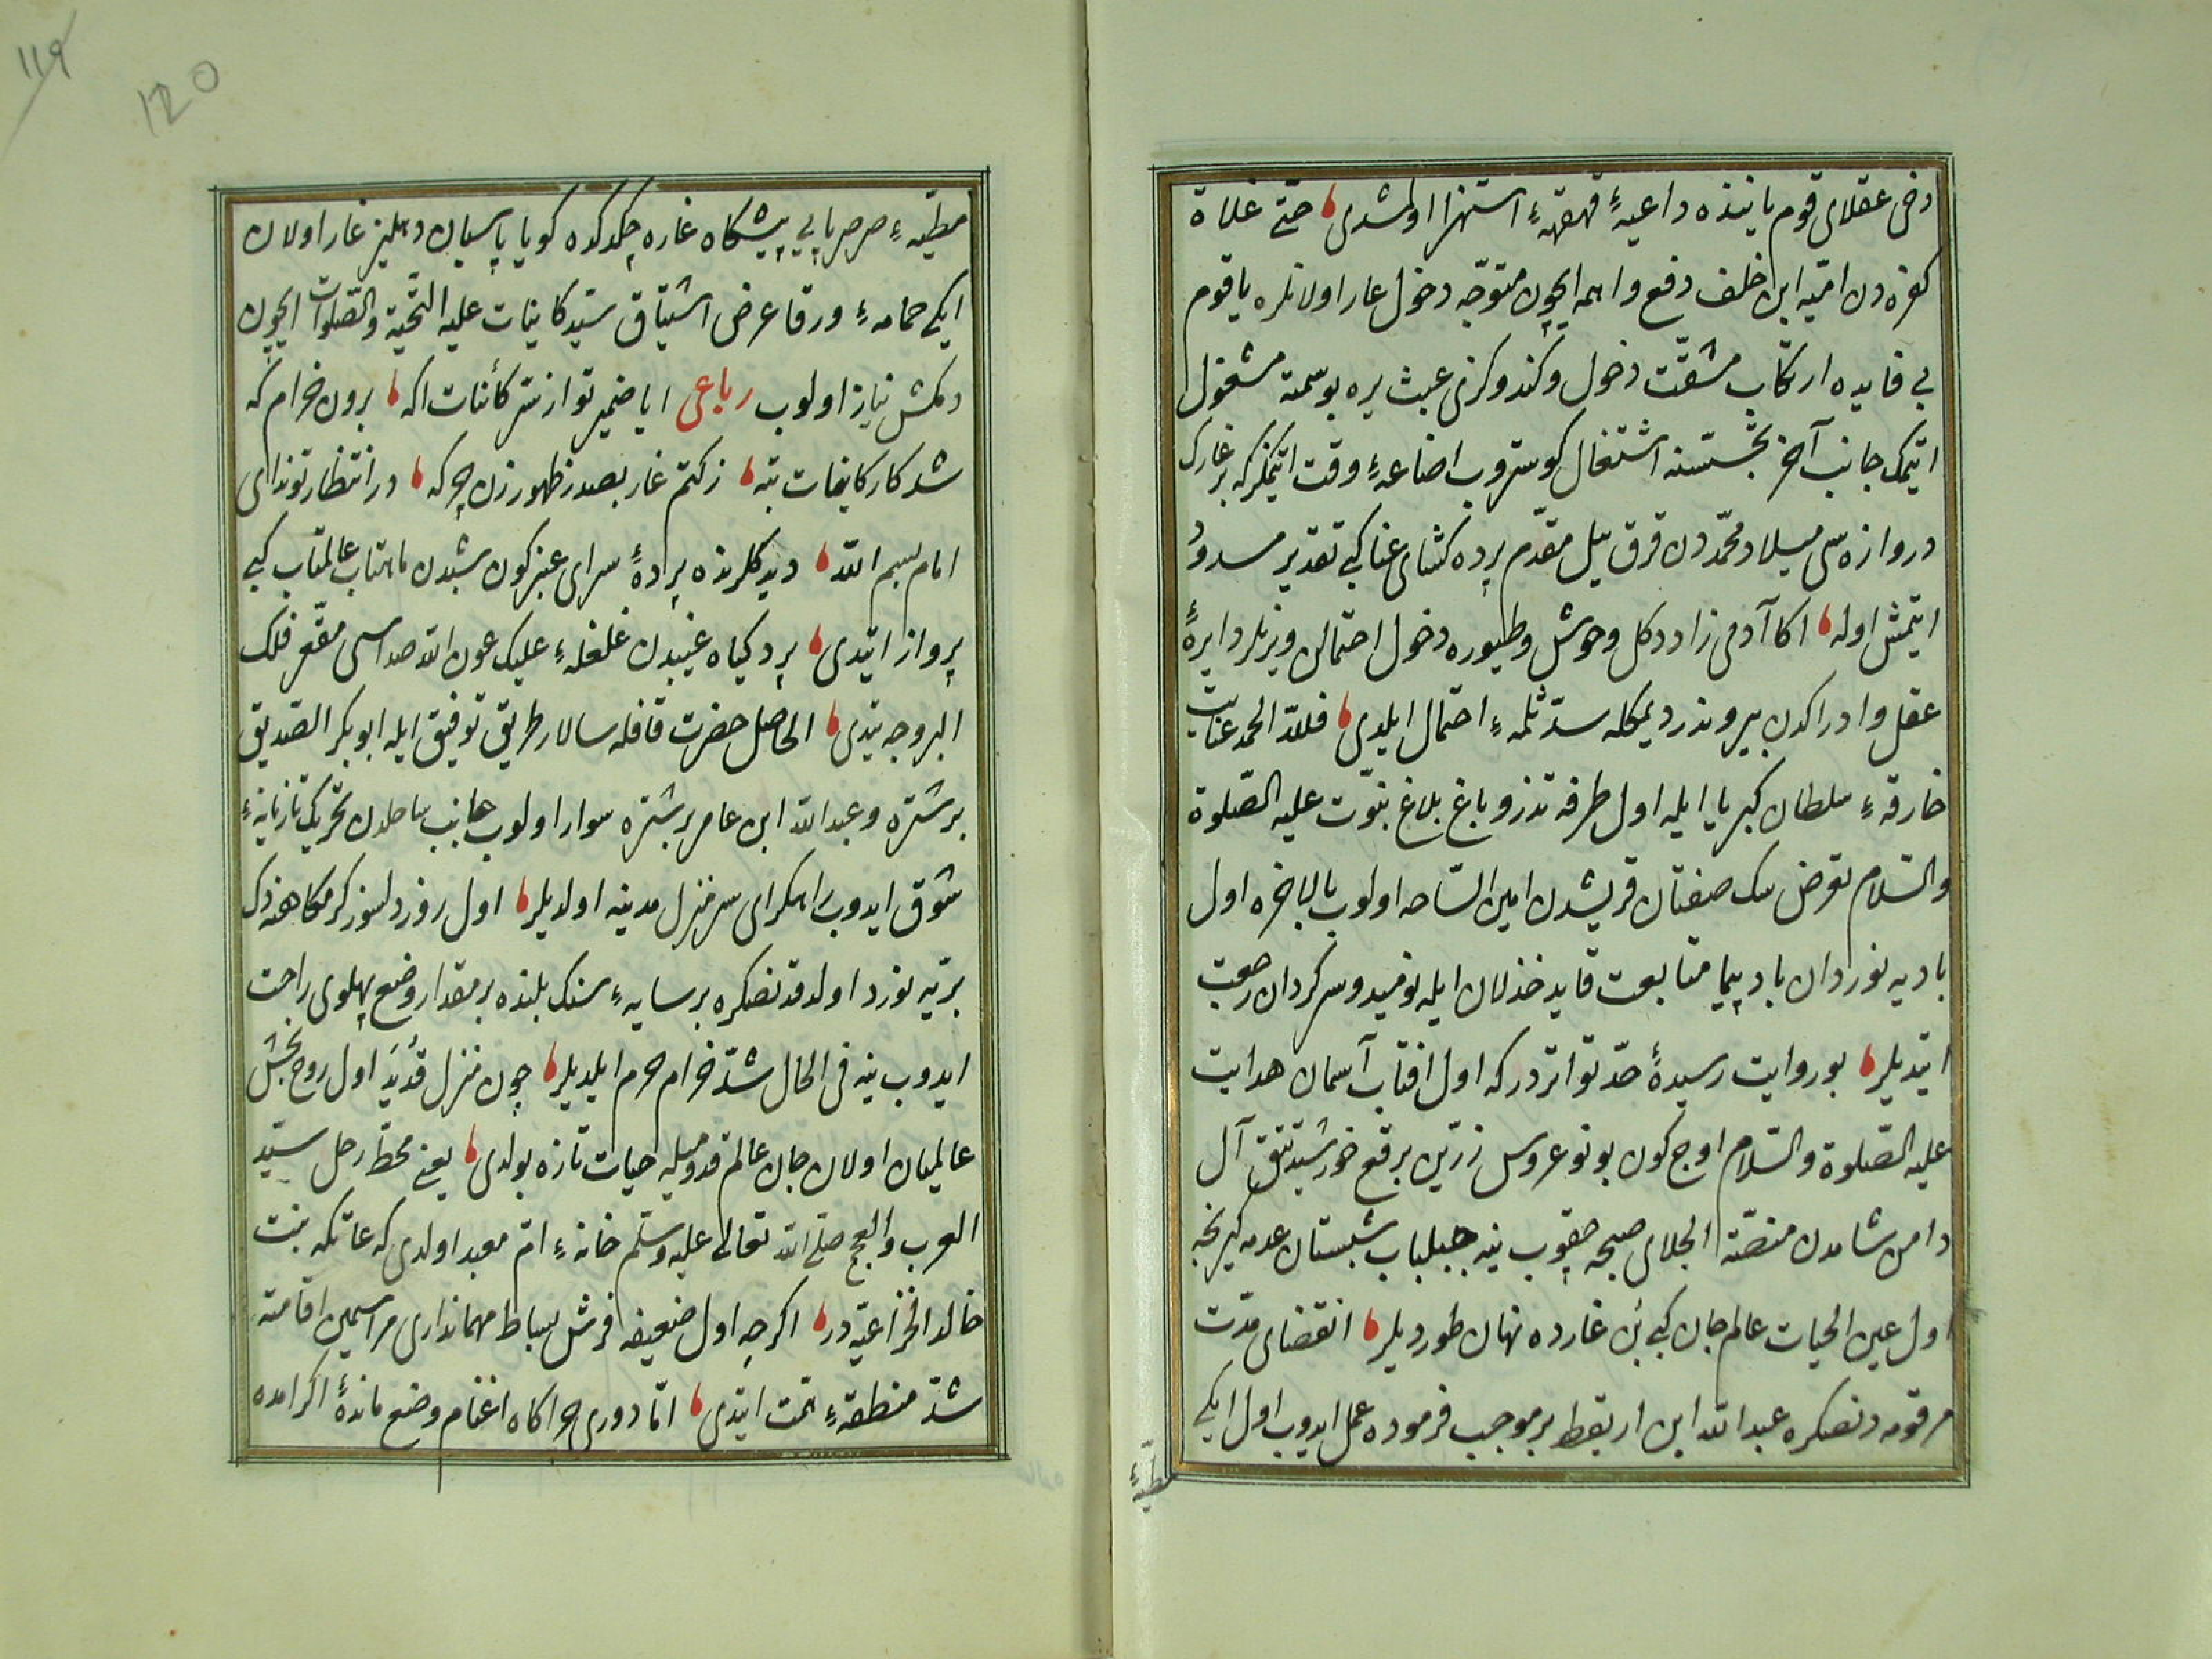 دخی عقلای قوم یاننده داعیهٔ قهقههٔ استهزا اولمشدی حتی غلاة
کفره دن امیه ابن خلف دفع واهمه ایچون متوجه دخول غار اولانلره یا قوم
بی فایده ارتکاب مشقت دخول وکندوکزی عبث یره بوسمته مشغول
اتیمک جانب آخر تجسسنه اشتغال کوستروب اضاعهٔ وقت اتیمکز که بر غارک
دروازه سی میلاد محمددن قرق ییل مقدم پرده کشای عناکب تقدیر مسدود
ایتمش اوله اکا آدمی زاد دکل وحوش وطیوره دخول احتمالن ویرنلر دایرهٔ
عقل وادراکدن بیروندر دیمکله سد ثلمهٔ احتمال ایلدی فلله الحمد عنایت
خارقهٔ سلطان کبریا ایله اول طرفه تذرو باغ بلاغ نبوت علیه الصلوة
والسلام تعرض سک صفتان قریشدن امین الساحه اولوب بالاخره اول
بادیه نوردان باد پیما متابعت قاید خذلان ایله نومید وسرکردان رجعت
ایتدیلر بو روایت رسیدهٔ حد تواتردر که اول افتاب آسمان هدایت
علیه الصلوة والسلام اوچ کون بو نو عروس زرین برقع خورشید تتق آل
دامن شامدن منصهٔ انجلای صبحه چقوب ینه جلباب شبستان عدمه کیرنجه
اول عین الحیات عالم جان کبی بن غارده نهان طوردیلر انقضای مدت
مرقومه دنصکره عبدالله ابن اریقط بر موجب فرموده عمل ایدوب اول ایکی
مطیهٔ
119
120
مطیهٔ صرصر پایی پیشکاه غاره چکدکده کویا پاسبان دهلیز غار اولان
ایکی حمامهٔ ورقا عرض اشتیاق سید کاینات علیه التحیة والصلوات ایچون
دمکش نیاز اولوب رباعی ایا ضمیر تو از سر کائنات اکه برون خرام که
شد کار کاینات تبه ز کتم غار بصدر ظهور زن چرکه در انتظار تو ندای
امام بسم الله دیدکلرنده پردهٔ سرای عنبرکون شبدن ماهتاب عالمتاب کبی
پرواز ایتدی پردکیاه غیبدن غلغلهٔ علیک عون الله صداسی مقعر فلک
البروجه یتدی الحاصل حضرت قافله سالار طریق توفیق ایله ابوبکر الصدیق
بر شتره وعبدالله ابن عامر بر شتره سوار اولوب جانب ساحلدن تحریک تازیانهٔ
شوق ایدوب راهکرای سر منزل مدینه اولدیلر اول روز دلسوز کرمکاهنه دک
بریه نورد اولدقدنصکره بر سایهٔ سنک بلنده بر مقدار وضع پهلوی راحت
ایدوب ینه فی الحال شد خرام حرم ایلدیلر چون منزل قدید اول روح بخش
عالمیان اولان جان عالم قدومیله حیات تازه بولدی یعنی محط رحل سید
العرب والعجم صلی الله تعالی علیه وسلم خانهٔ ام معبد اولدی که عاتکه بنت
خالد الخزاعیه در اکرچه اول ضعیفه فرش بساط مهمانداری مراسمین اقامته
شد منطقهٔ همت ایتدی اما دوری چراکاه اغنام وضع مائدهٔ اکرامده